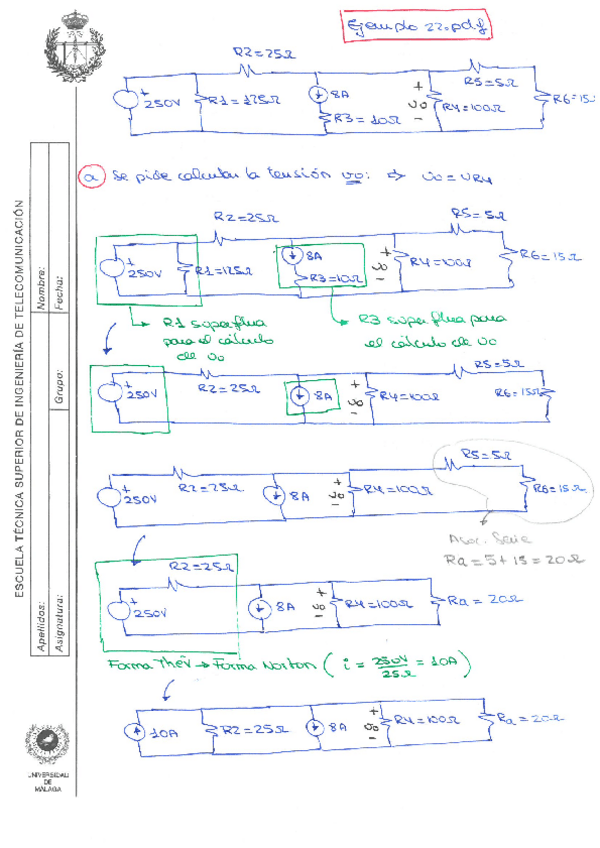 Ejemplo 22.pdf
R2=25Ω
250V
R1=125Ω
8A
R3=10Ω
+
vo
-
R4=100Ω
R5=5Ω
R6=15Ω
a Se pide calcular la tensión vo: ⇒ vo=vR4
R2=25Ω
+
250V
R1=125Ω
8A
R3=10Ω
+
vo
-
R4=100Ω
R5=5Ω
R6=15Ω
R1 superflua
para el cálculo
de vo
R3 superflua para
el cálculo de vo
+
250V
R2=25Ω
8A
+
vo
-
R4=100Ω
R5=5Ω
R6=15Ω
+
250V
R2=25Ω
8A
+
vo
-
R4=100Ω
R5=5Ω
R6=15Ω
Asoc. Serie
Ra=5+15=20Ω
R2=25Ω
+
250V
8A
+
vo
-
R4=100Ω
Ra=20Ω
Forma Thev → Forma Norton ( i = 250V/25Ω = 10A )
10A
R2=25Ω
8A
+
vo
-
R4=100Ω
Ra=20Ω
ESCUELA TÉCNICA SUPERIOR DE INGENIERÍA DE TELECOMUNICACIÓN
Apellidos:
Nombre:
Asignatura:
Grupo:
Fecha:
UNIVERSIDAD
DE
MÁLAGA